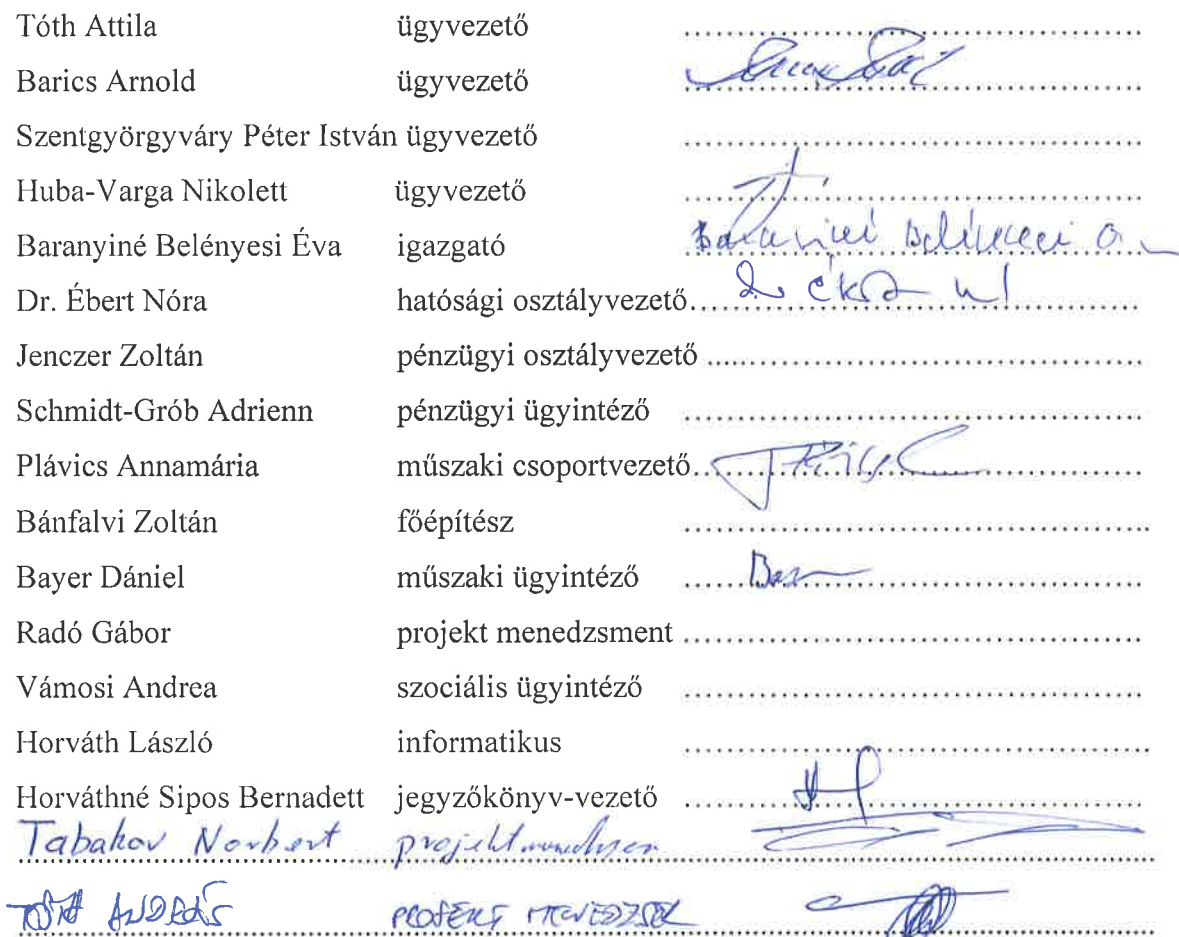 Tóth Attila ügyvezető
Barics Arnold ügyvezető
Szentgyörgyváry Péter István ügyvezető
Huba-Varga Nikolett ügyvezető
Baranyiné Belényesi Éva igazgató
Dr. Ébert Nóra hatósági osztályvezető
Jenczer Zoltán pénzügyi osztályvezető
Schmidt-Grób Adrienn pénzügyi ügyintéző
Plávics Annamária műszaki csoportvezető
Bánfalvi Zoltán főépítész
Bayer Dániel műszaki ügyintéző
Radó Gábor projekt menedzsment
Vámosi Andrea szociális ügyintéző
Horváth László informatikus
Horváthné Sipos Bernadett jegyzőkönyv-vezető
Tabakov Norbert
TÓTH ANDRÁS PROJEKT MENEDZSER